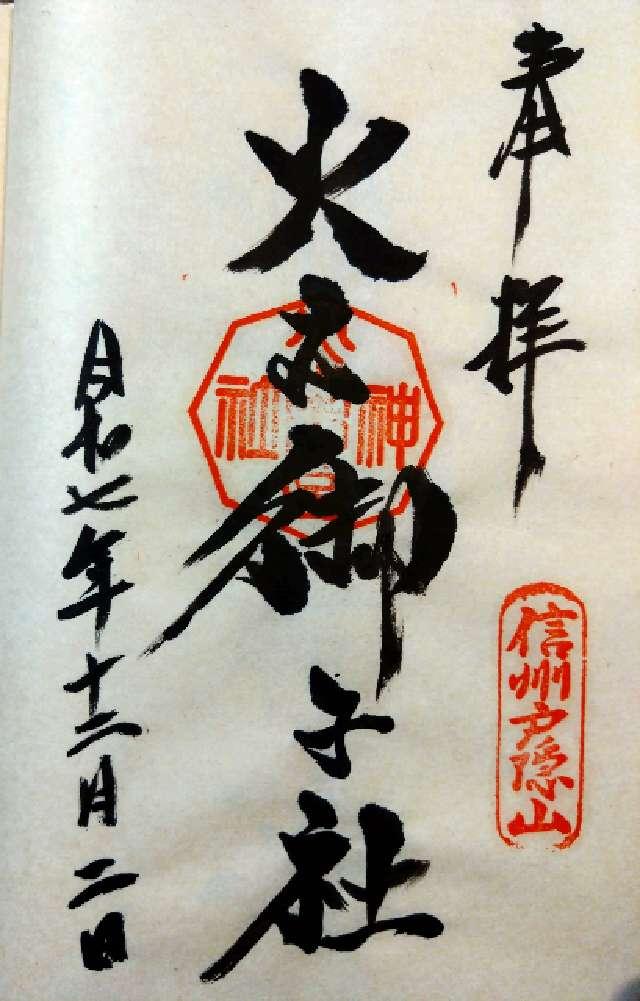 奉拝
信州戸隠山
火之御子社
神
社
令和七年十二月二日